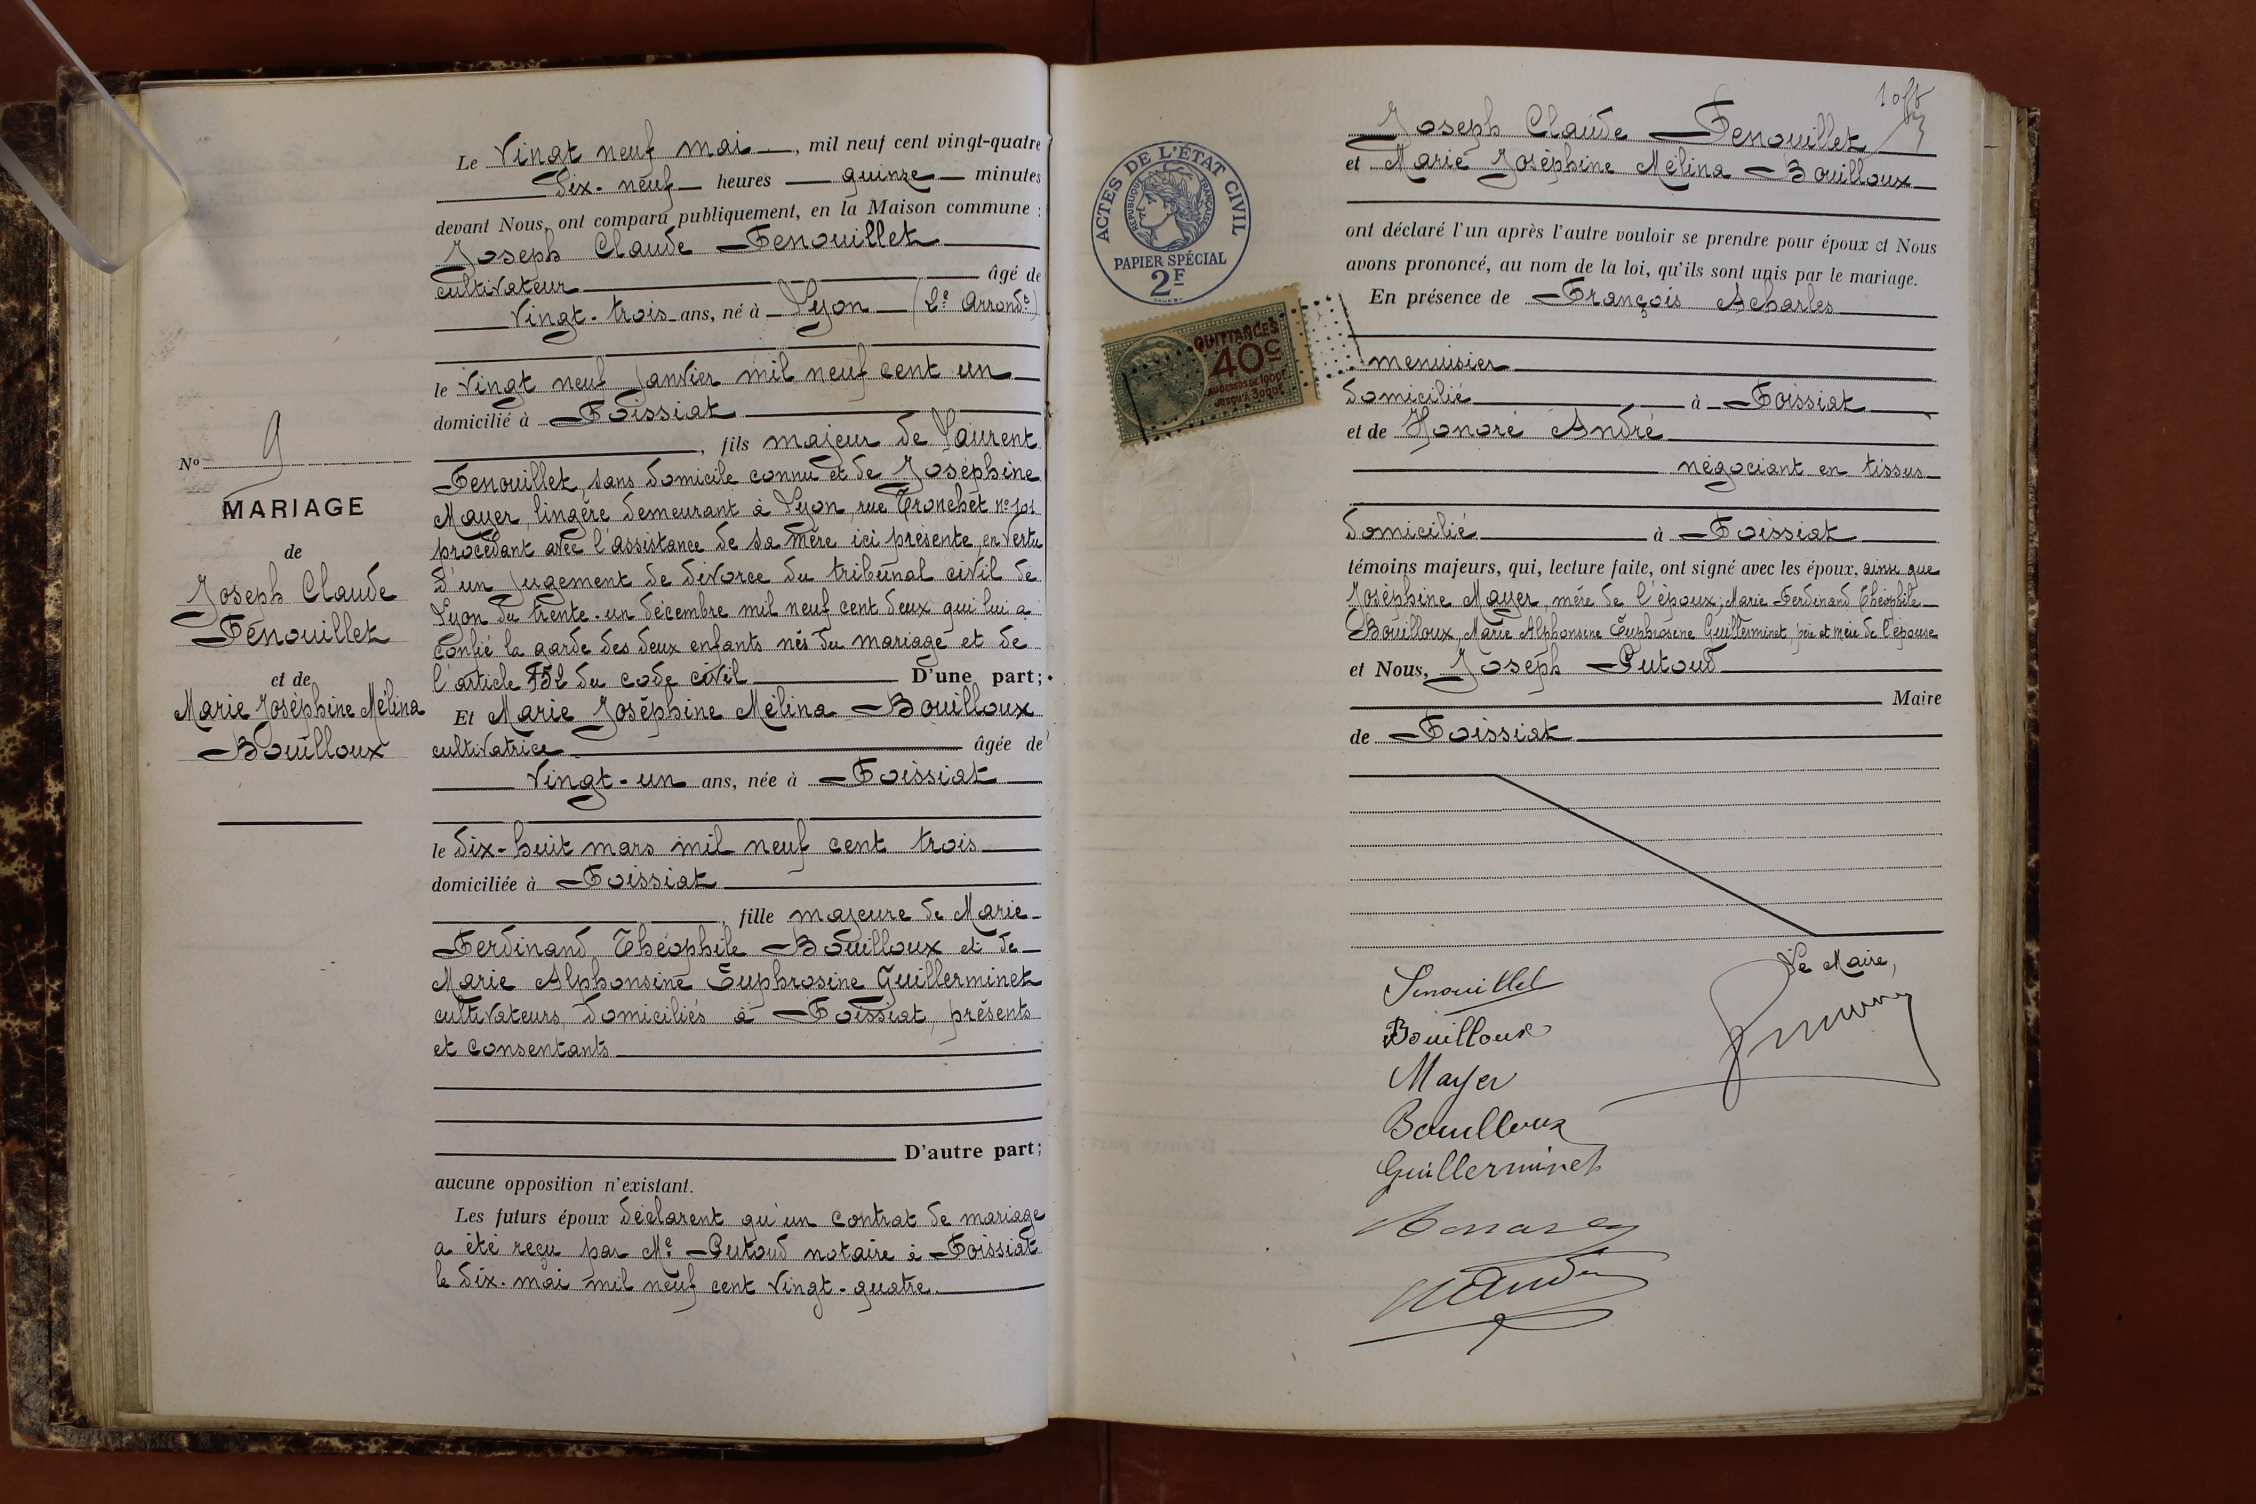 Le Vingt neuf mai, mil neuf cent vingt-quatre
Dix-neuf heures quinze minutes
devant Nous, ont comparu publiquement, en la Maison commune :
Joseph Claude Fenouillet
cultivateur âgé de
Vingt-trois ans, né à Lyon (2e Arrondt)
le Vingt neuf Janvier mil neuf cent un
domicilié à Foissiat
, fils majeur de Laurent
Fenouillet, sans domicile connu et de Joséphine
Mayer, lingère demeurant à Lyon, rue Tronchet no 101
procédant avec l'assistance de sa mère ici présente, en vertu
d'un jugement de divorce du tribunal civil de
Lyon du trente-un décembre mil neuf cent deux qui lui a
confié la garde des deux enfants nés du mariage et de
l'article 152 du code civil D'une part;
Et Marie Joséphine Mélina Bouilloux
cultivatrice âgée de
Vingt-un ans, née à Foissiat
le dix-huit mars mil neuf cent trois
domiciliée à Foissiat
, fille majeure de Marie
Ferdinand Théophile Bouilloux et de
Marie Alphonsine Euphrosine Guillerminet
cultivateurs, domiciliés à Foissiat, présents
et consentants
D'autre part;
aucune opposition n'existant.
Les futurs époux déclarent qu'un contrat de mariage
a été reçu par Me Putoud notaire à Foissiat
le dix mai mil neuf cent vingt-quatre.
No 9
MARIAGE
de
Joseph Claude
Fenouillet
et de
Marie Joséphine Mélina
Bouilloux
ACTES DE L'ÉTAT CIVIL
RÉPUBLIQUE FRANÇAISE
PAPIER SPÉCIAL
2F
QUITTANCES
40c
AU DESSUS DE 1000F
JUSQU'À 3000F
Joseph Claude Fenouillet
et Marie Joséphine Mélina Bouilloux
ont déclaré l'un après l'autre vouloir se prendre pour époux et Nous
avons prononcé, au nom de la loi, qu'ils sont unis par le mariage.
En présence de François Acharles
menuisier
domicilié à Foissiat
et de Honoré André
négociant en tissus
domicilié à Foissiat
témoins majeurs, qui, lecture faite, ont signé avec les époux, ainsi que
Joséphine Mayer, mère de l'époux; Marie Ferdinand Théophile
Bouilloux, Marie Alphonsine Euphrosine Guillerminet, père et mère de l'épouse
et Nous, Joseph Putoud
Maire
de Foissiat
Le Maire,
Fenouillet
Bouilloux
Mayer
Bouilloux
Guillerminet